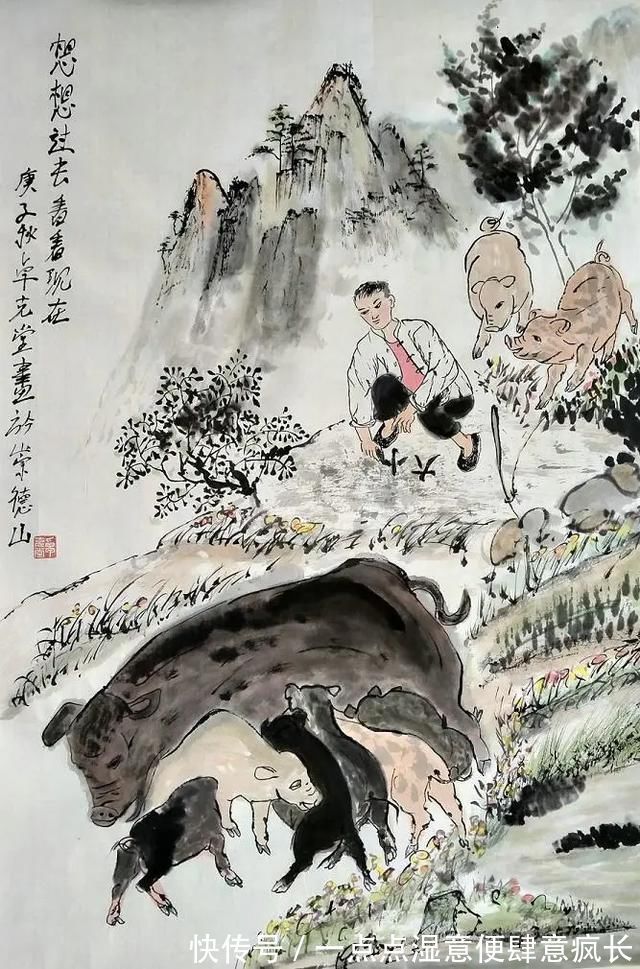 想想过去看看现在
庚子秋卓克堂畫於崇德山
大小
快传号 / 一点点湿意便肆意疯长